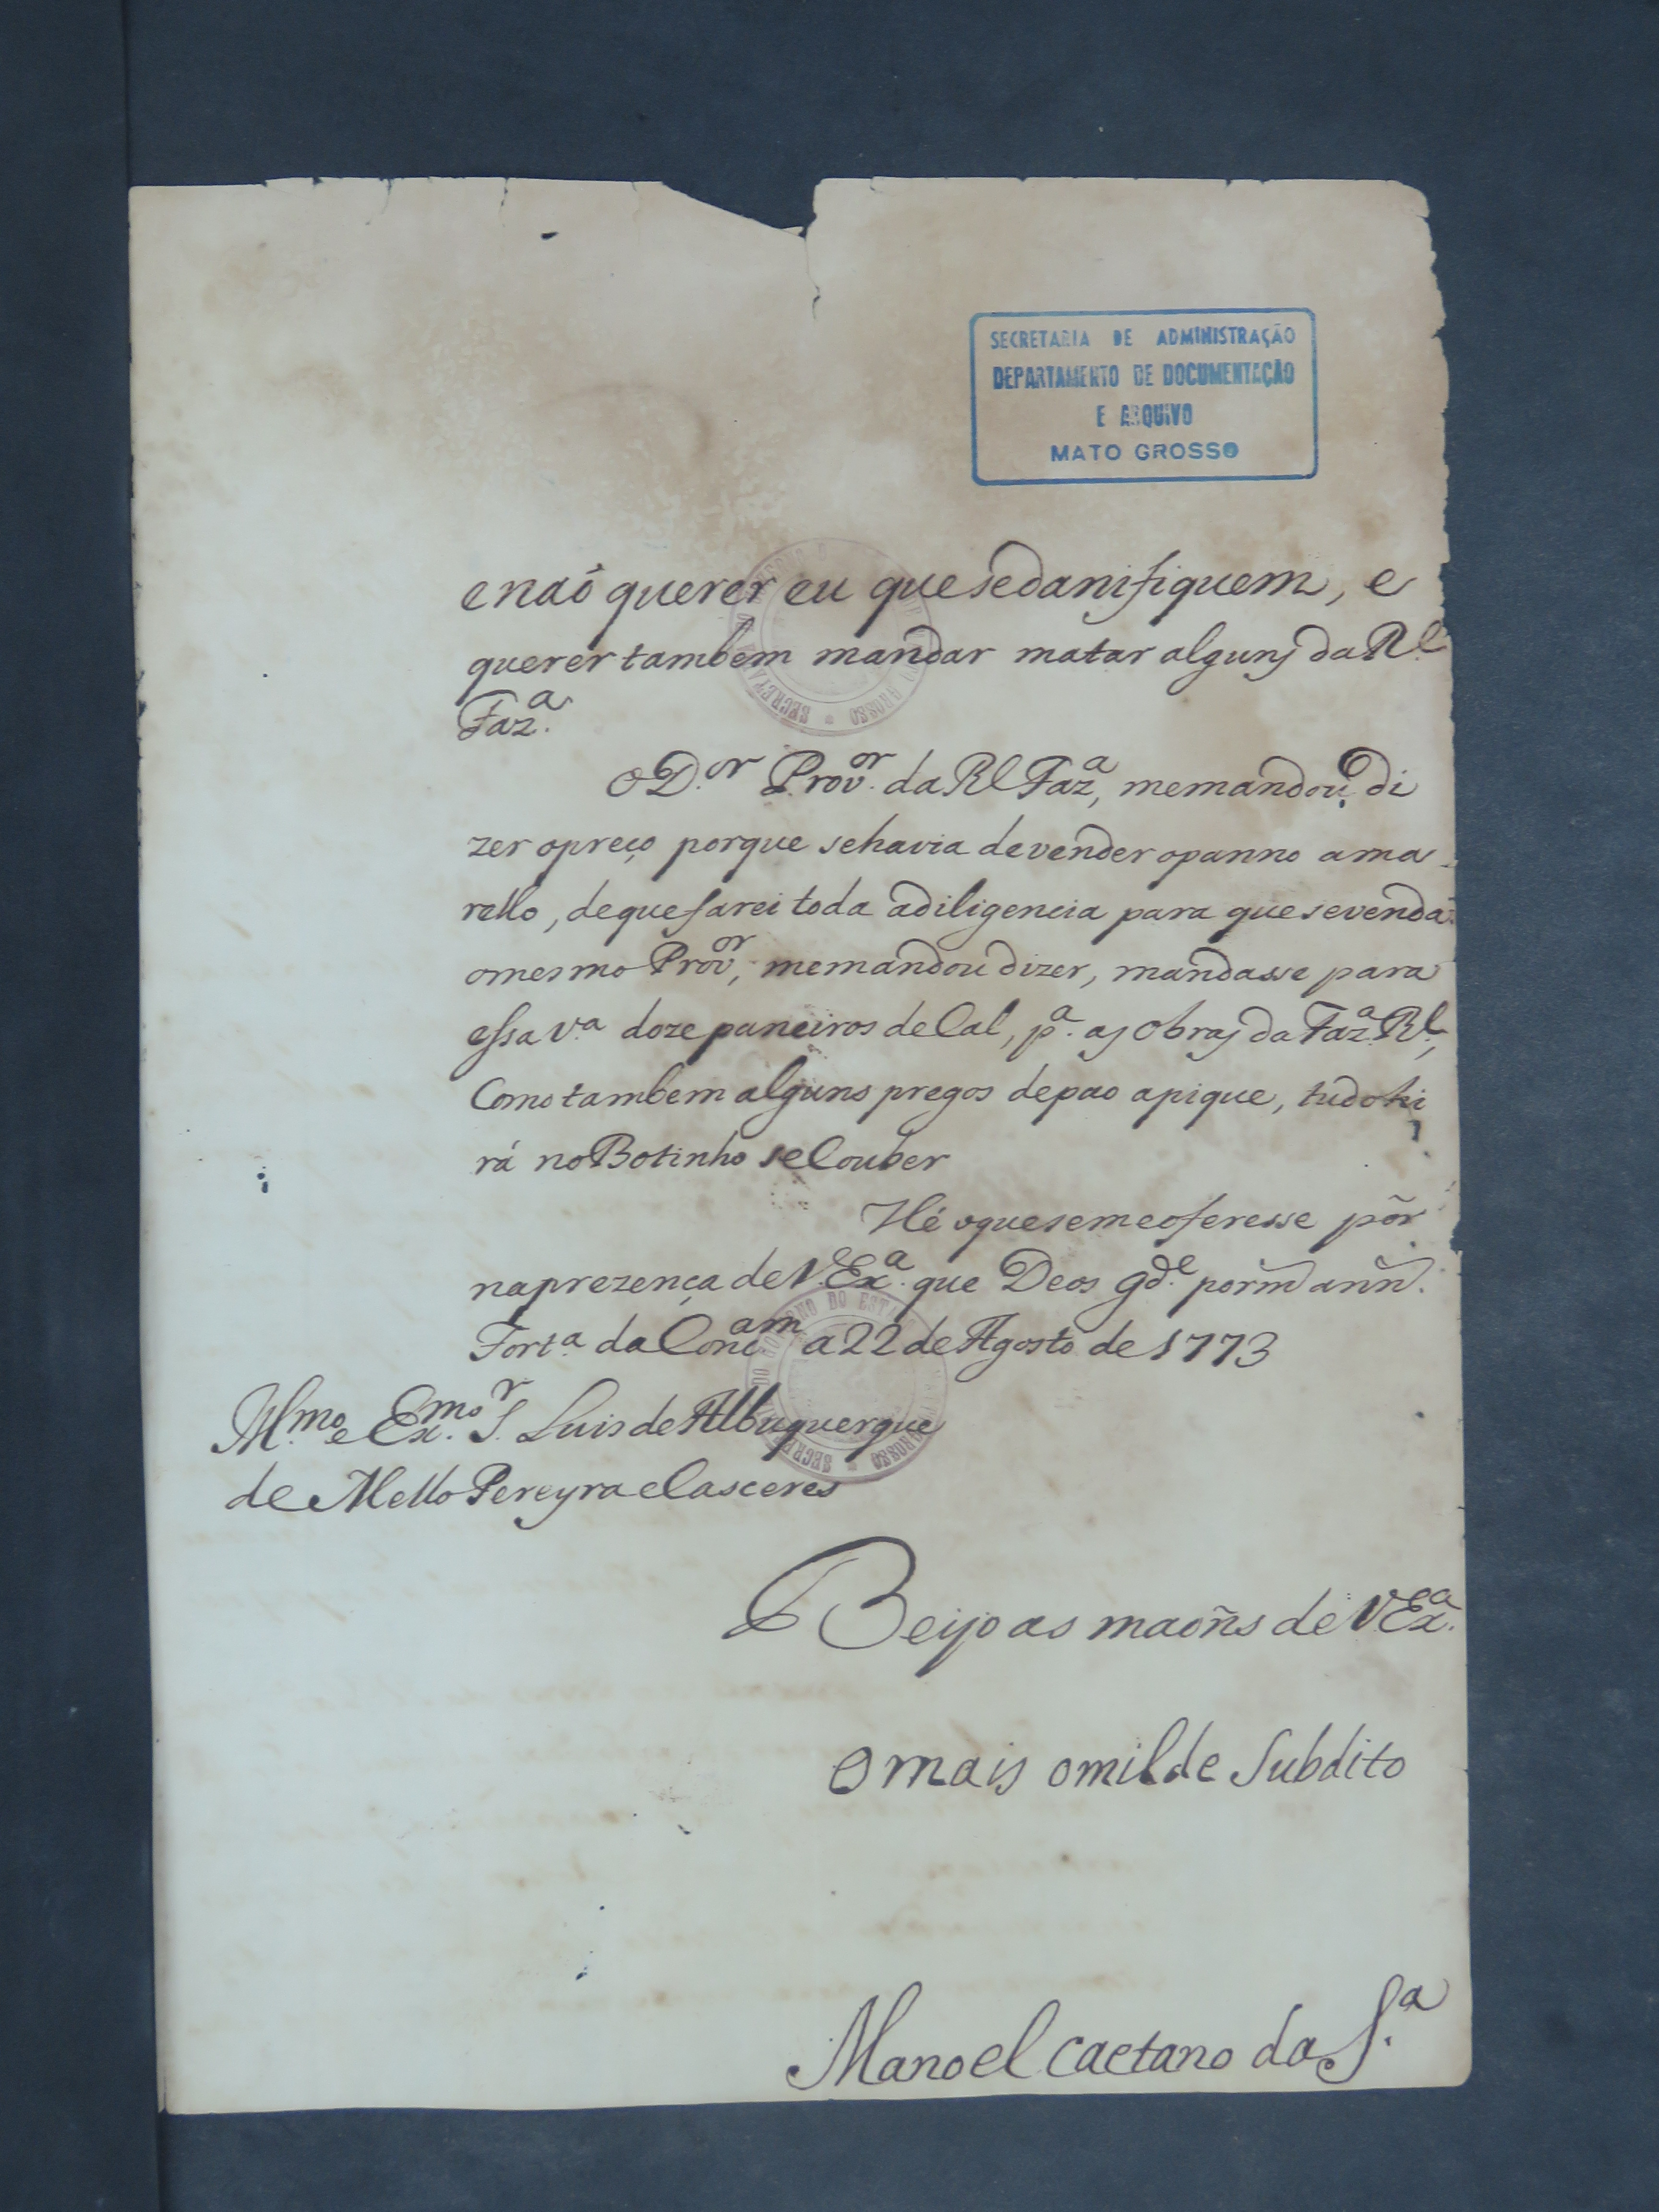 SECRETARIA DE ADMINISTRAÇÃO
DEPARTAMENTO DE DOCUMENTAÇÃO
E ARQUIVO
MATO GROSSO
e naõ querer eu que sedanifiquem, e
querer tambem mandar matar alguns da Rl.
Faz.ª
O D.or Prov.or da Rl Faz.ª, memandou di
zer opreço porque sehavia devender opanno ama
rello, deque farei toda adiligencia para que sevenda
omesmo Prov.or, memandou dizer, mandasse para
essa v.ª doze paneiros de Cal, p.ª as obras da Faz.ª Rl.,
Como tambem alguns pregos depao apique, tudo hi
rá no Botinho se Couber
Hé oquesemeoferesse pôr
naprezença de V. Ex.ª que Deos g.de por m annˢ.
Fort.ª da Conc.am a 22 de Agosto de 1773
Ill.mo e Ex.mo S.r Luis de Albuquerque
de Mello Pereyra e Casceres
Beijo as maoñs de V. Ex.ª
O mais omilde Subdito
Manoel Caetano da S.ª